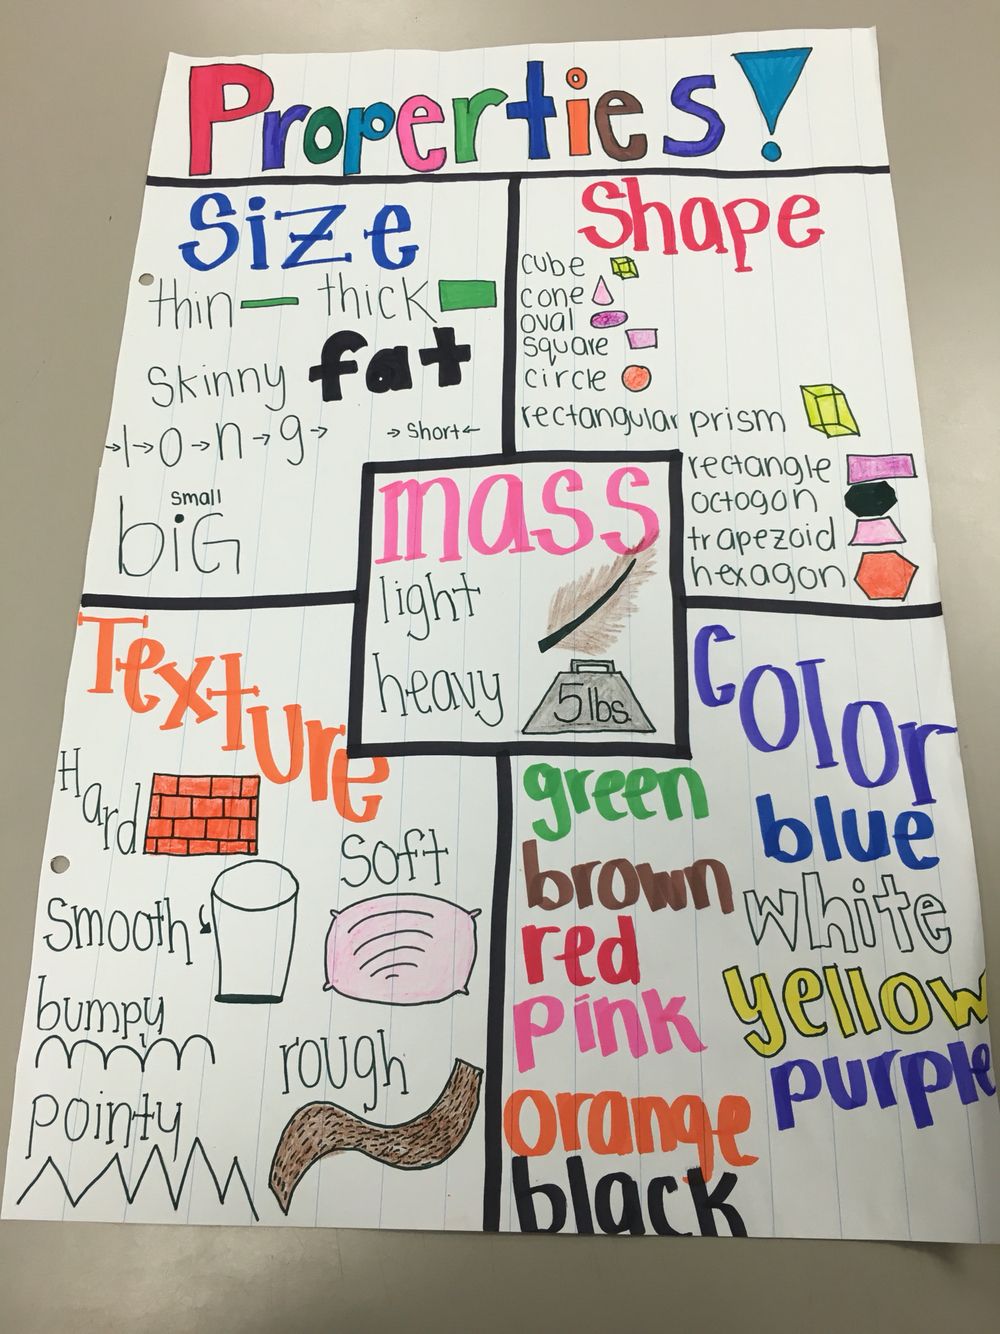 Properties!
Size
thin thick
Skinny fat
l o n g short
small
biG
Shape
cube
cone
oval
square
circle
rectangular prism
rectangle
octogon
trapezoid
hexagon
mass
light
heavy
5 lbs.
Texture
Hard
Soft
Smooth
bumpy
rough
pointy
Color
green
blue
brown
white
red
yellow
pink
purple
orange
black